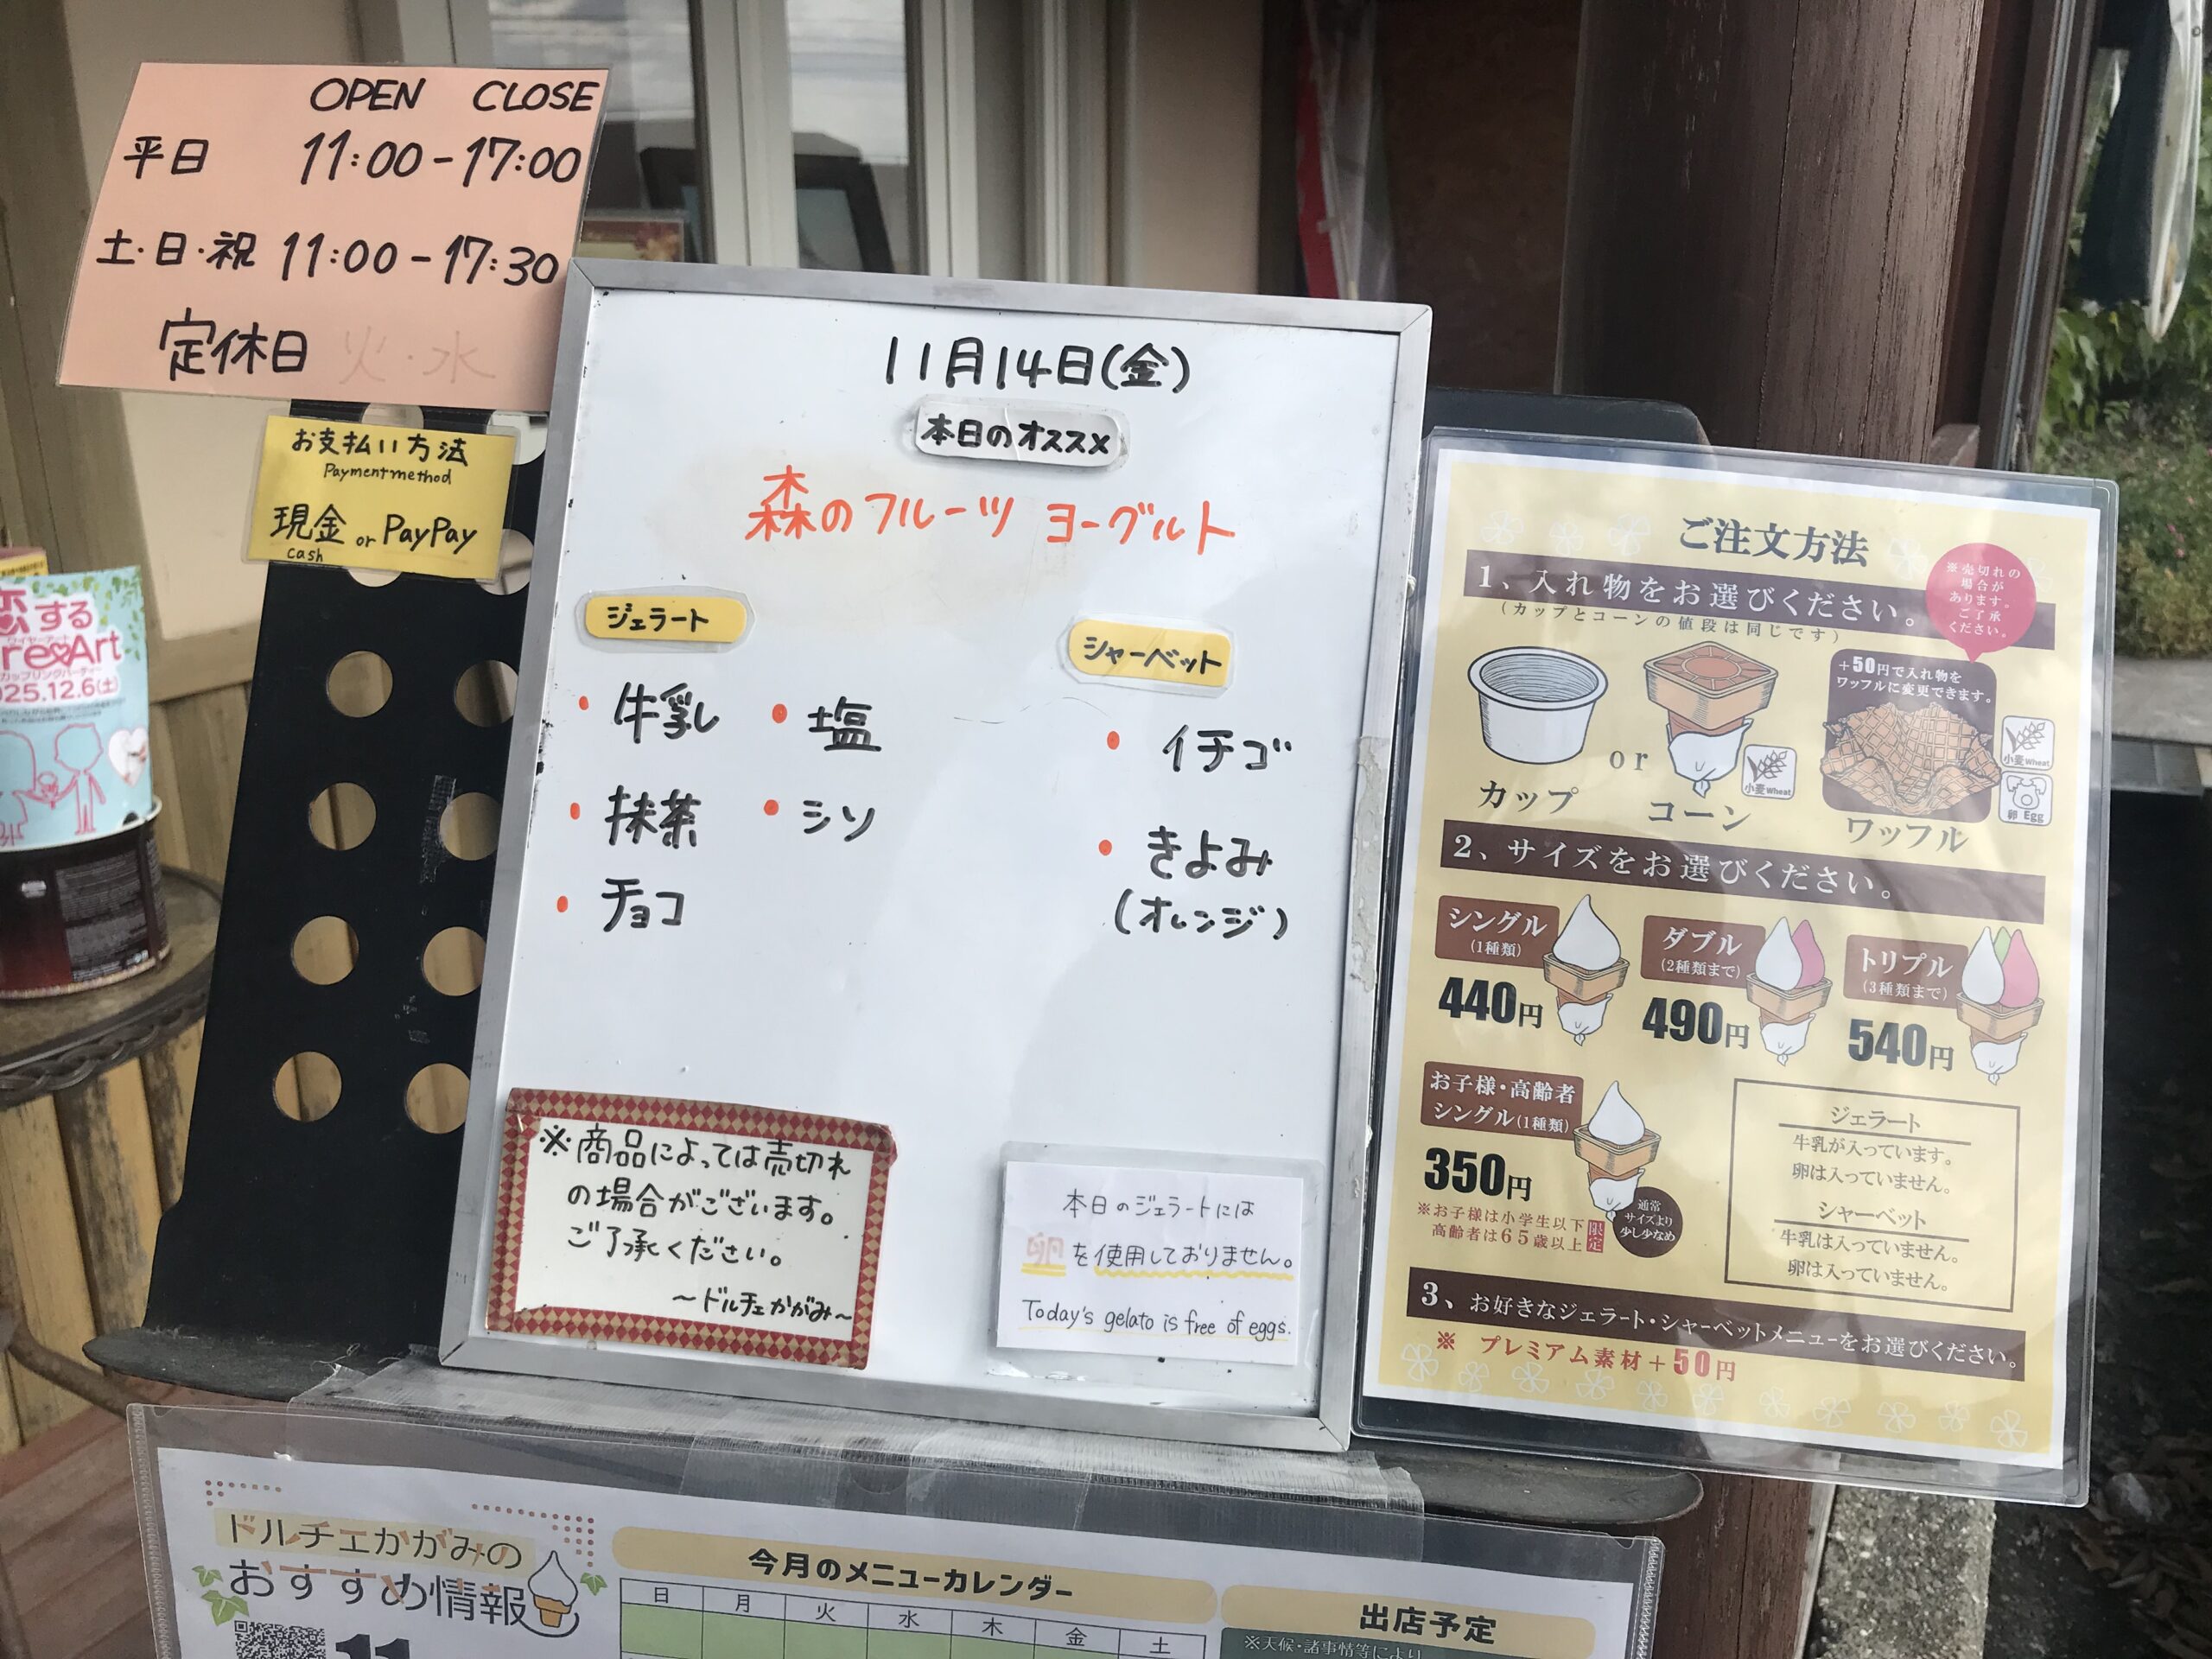 OPEN CLOSE
平日 11:00-17:00
土・日・祝 11:00-17:30
定休日 火・水
お支払い方法
Payment method
現金 or PayPay
cash
恋する
ワイヤーアート
re Art
カップリングパーティー
025.12.6(土)
11月14日(金)
本日のオススメ
森のフルーツ ヨーグルト
ジェラート
・牛乳 ・塩
・抹茶 ・シソ
・チョコ
シャーベット
・イチゴ
・きよみ
(オレンジ)
※商品によっては売切れ
の場合がございます。
ご了承ください。
〜ドルチェかがみ〜
本日のジェラートには
卵を使用しておりません。
Today's gelato is free of eggs.
ご注文方法
1、入れ物をお選びください。
(カップとコーンの値段は同じです)
※売切れの
場合が
あります。
ご了承
ください。
+50円で入れ物を
ワッフルに変更できます。
or
小麦 Wheat
小麦 Wheat
卵 Egg
カップ コーン ワッフル
2、サイズをお選びください。
シングル
(1種類)
440円
ダブル
(2種類まで)
490円
トリプル
(3種類まで)
540円
お子様・高齢者
シングル(1種類)
350円
※お子様は小学生以下
高齢者は65歳以上
限定
通常
サイズより
少し少なめ
ジェラート
牛乳が入っています。
卵は入っていません。
シャーベット
牛乳は入っていません。
卵は入っていません。
3、お好きなジェラート・シャーベットメニューをお選びください。
※ プレミアム素材+50円
ドルチェかがみの
おすすめ情報
11
今月のメニューカレンダー
日 月 火 水 木 金 土
出店予定
※天候・諸事情等により